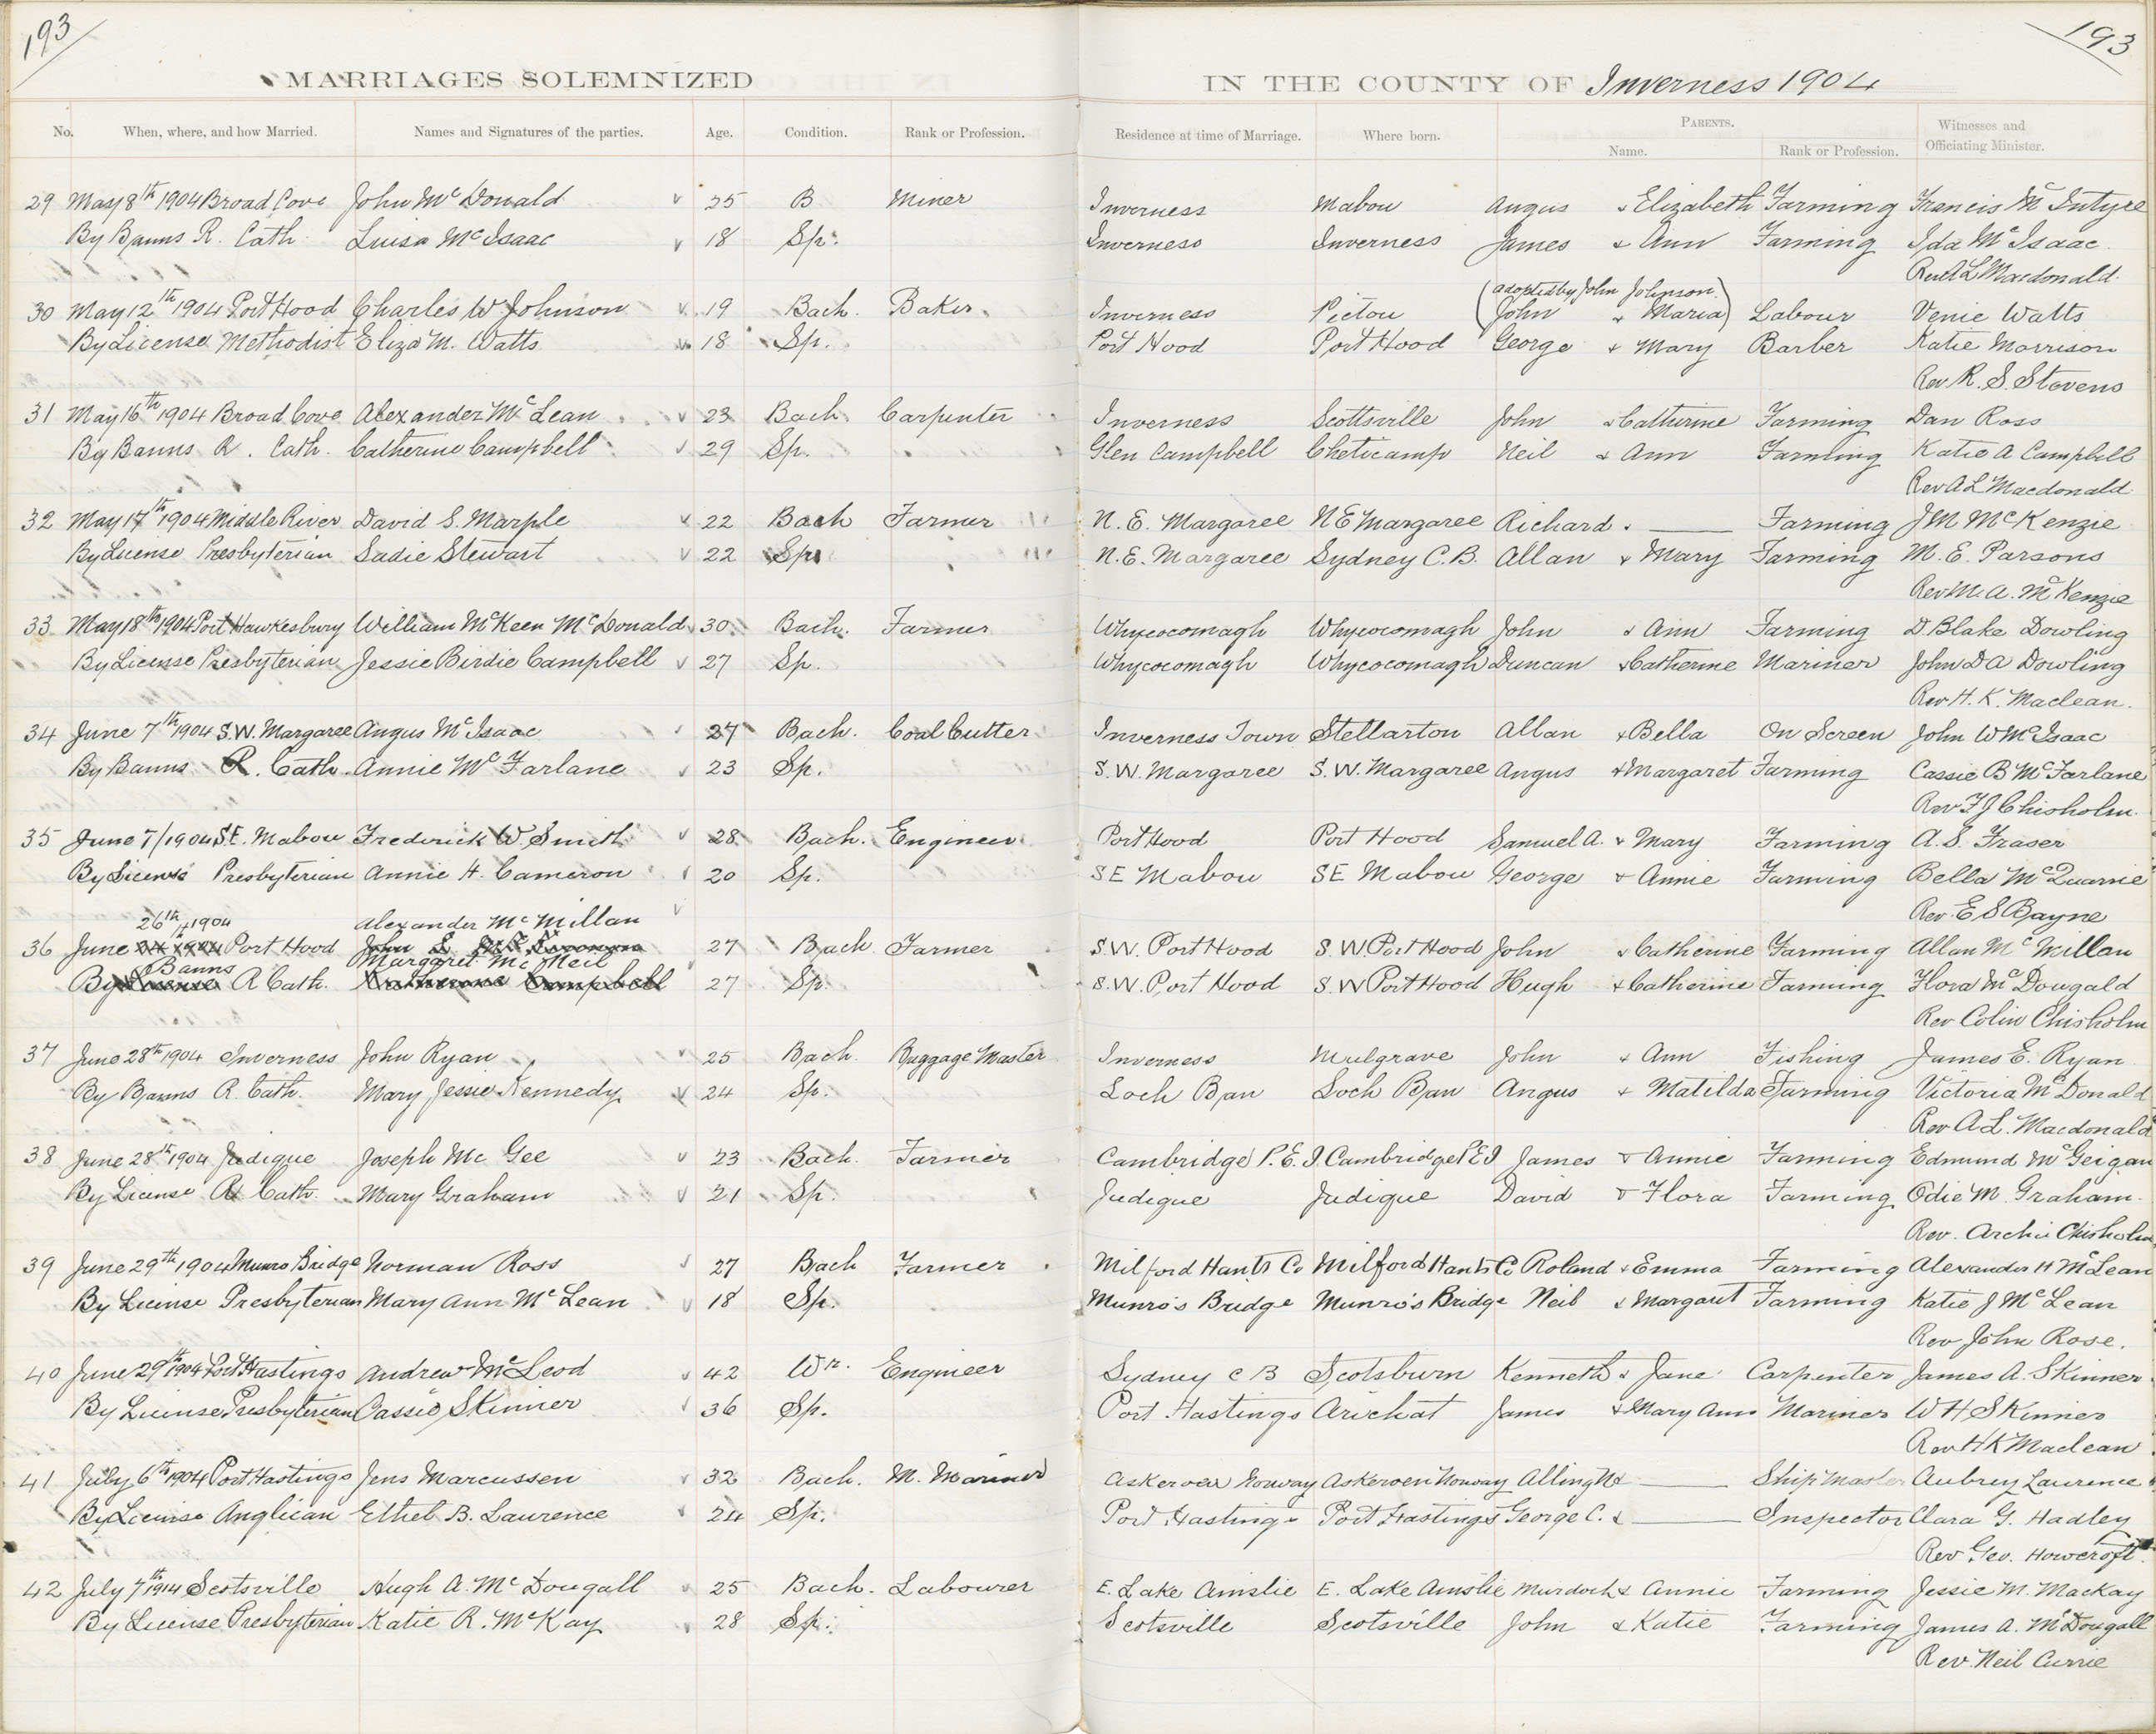 193
193
MARRIAGES SOLEMNIZED IN THE COUNTY OF Inverness 1904
No. When, where, and how Married. Names and Signatures of the parties. Age. Condition. Rank or Profession. Residence at time of Marriage. Where born. PARENTS. Name. Rank or Profession. Witnesses and Officiating Minister.
29 May 8th 1904 Broad Cove John McDonald 25 B Miner Inverness Mabou Angus & Elizabeth Farming Francis McIntyre
By Banns R. Cath. Luisa McIsaac 18 Sp. Inverness Inverness James & Ann Farming Ida McIsaac
Rev A L Macdonald
(adopted by John Johnson.
30 May 12th 1904 Port Hood Charles W Johnson 19 Bach. Baker Inverness Pictou John & Maria) Labour Venie Watts
By License Methodist Eliza M. Watts 18 Sp. Port Hood Port Hood George & Mary Barber Katie Morrison
Rev R. S. Stevens
31 May 16th 1904 Broad Cove Alexander McLean 23 Bach. Carpenter Inverness Scottsville John & Catherine Farming Dan Ross
By Banns R. Cath. Catherine Campbell 29 Sp. Glen Campbell Cheticamp Neil & Ann Farming Katie A Campbell
Rev A L Macdonald
32 May 17th 1904 Middle River David S. Marple 22 Bach Farmer N.E. Margaree N E Margaree Richard Farming J M McKenzie
By License Presbyterian Sadie Stewart 22 Sp. N.E. Margaree Sydney C.B. Allan & Mary Farming M. E. Parsons
Rev M. A. McKenzie
33 May 18th 1904 Port Hawkesbury William McKeen McDonald 30 Bach. Farmer Whycocomagh Whycocomagh John & Ann Farming D Blake Dowling
By License Presbyterian Jessie Birdie Campbell 27 Sp. Whycocomagh Whycocomagh Duncan & Catherine Mariner John D A Dowling
Rev H. K. Maclean.
34 June 7th 1904 S.W. Margaree Angus McIsaac 27 Bach. Coal Cutter Inverness Town Stellarton Allan & Bella On Screen John W McIsaac
By Banns R. Cath. Annie McFarlane 23 Sp. S.W. Margaree S.W. Margaree Angus & Margaret Farming Cassie B McFarlane
Rev F J Chisholm.
35 June 7/1904 S.E. Mabou Frederick W. Smith 28 Bach. Engineer Port Hood Port Hood Samuel A. & Mary Farming A. S. Fraser
By License Presbyterian Annie H. Cameron 20 Sp. S E Mabou S E Mabou George & Annie Farming Bella McQuarrie
Rev. E S Bayne
26th 1904 Alexander McMillan
36 June Port Hood 27 Bach Farmer S.W. Port Hood S.W. Port Hood John & Catherine Farming Allan McMillan
Banns Margaret McNeil
By License R Cath. Katherine Campbell 27 Sp. S.W. Port Hood S.W Port Hood Hugh & Catherine Farming Flora McDougald
Rev Colin Chisholm
37 June 28th 1904 Inverness John Ryan 25 Bach. Baggage Master Inverness Mulgrave John & Ann Fishing James E. Ryan
By Banns R. Cath. Mary Jessie Kennedy 24 Sp. Loch Ban Loch Ban Angus & Matilda Farming Victoria McDonald
Rev A. L. Macdonald
38 June 28th 1904 Judique Joseph Mc Gee 23 Bach. Farmer Cambridge P.E.I. Cambridge P E I James & Annie Farming Edmund McGeigan
By License R Cath. Mary Graham 21 Sp. Judique Judique David & Flora Farming Odie M. Graham.
Rev. Archie Chisholm
39 June 29th 1904 Munro Bridge Norman Ross 27 Bach Farmer Milford Hants Co Milford Hants Co Roland & Emma Farming Alexander H McLean
By License Presbyterian Mary Ann McLean 18 Sp. Munro's Bridge Munro's Bridge Neil & Margaret Farming Katie J McLean
Rev John Rose.
40 June 29th 1904 Port Hastings Andrew McLeod 42 Wr. Engineer Sydney C B Scotsburn Kenneth & Jane Carpenter James A. Skinner
By License Presbyterian Cassie Skinner 36 Sp. Port Hastings Arichat James & Mary Ann Mariner W H Skinner
Rev H K Maclean
41 July 6th 1904 Port Hastings Jens Marcussen 32 Bach. M. Mariner Askeroen Norway Askeroen Norway Alling N & Ship Master Aubrey Laurence
By License Anglican Ethel B. Laurence 24 Sp. Port Hastings Port Hastings George C. & Inspector Clara G. Hadley
Rev Geo. Howcroft.
42 July 7th 1914 Scotsville Hugh A. McDougall 25 Bach. Labourer E. Lake Ainslie E. Lake Ainslie Murdock & Annie Farming Jessie M. MacKay
By License Presbyterian Katie R. McKay 28 Sp. Scotsville Scotsville John & Katie Farming James A. McDougall
Rev. Neil Currie